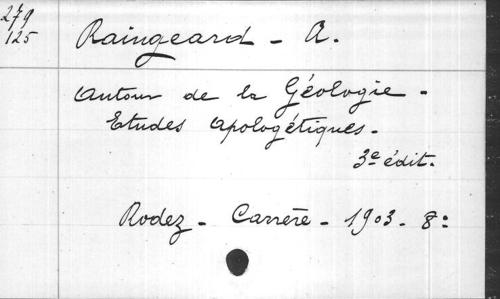 279
125
Raingeard - A.
Autour de la Géologie -
Etudes Apologétiques -
3e édit.
Rodez - Carrère - 1903 - 8º